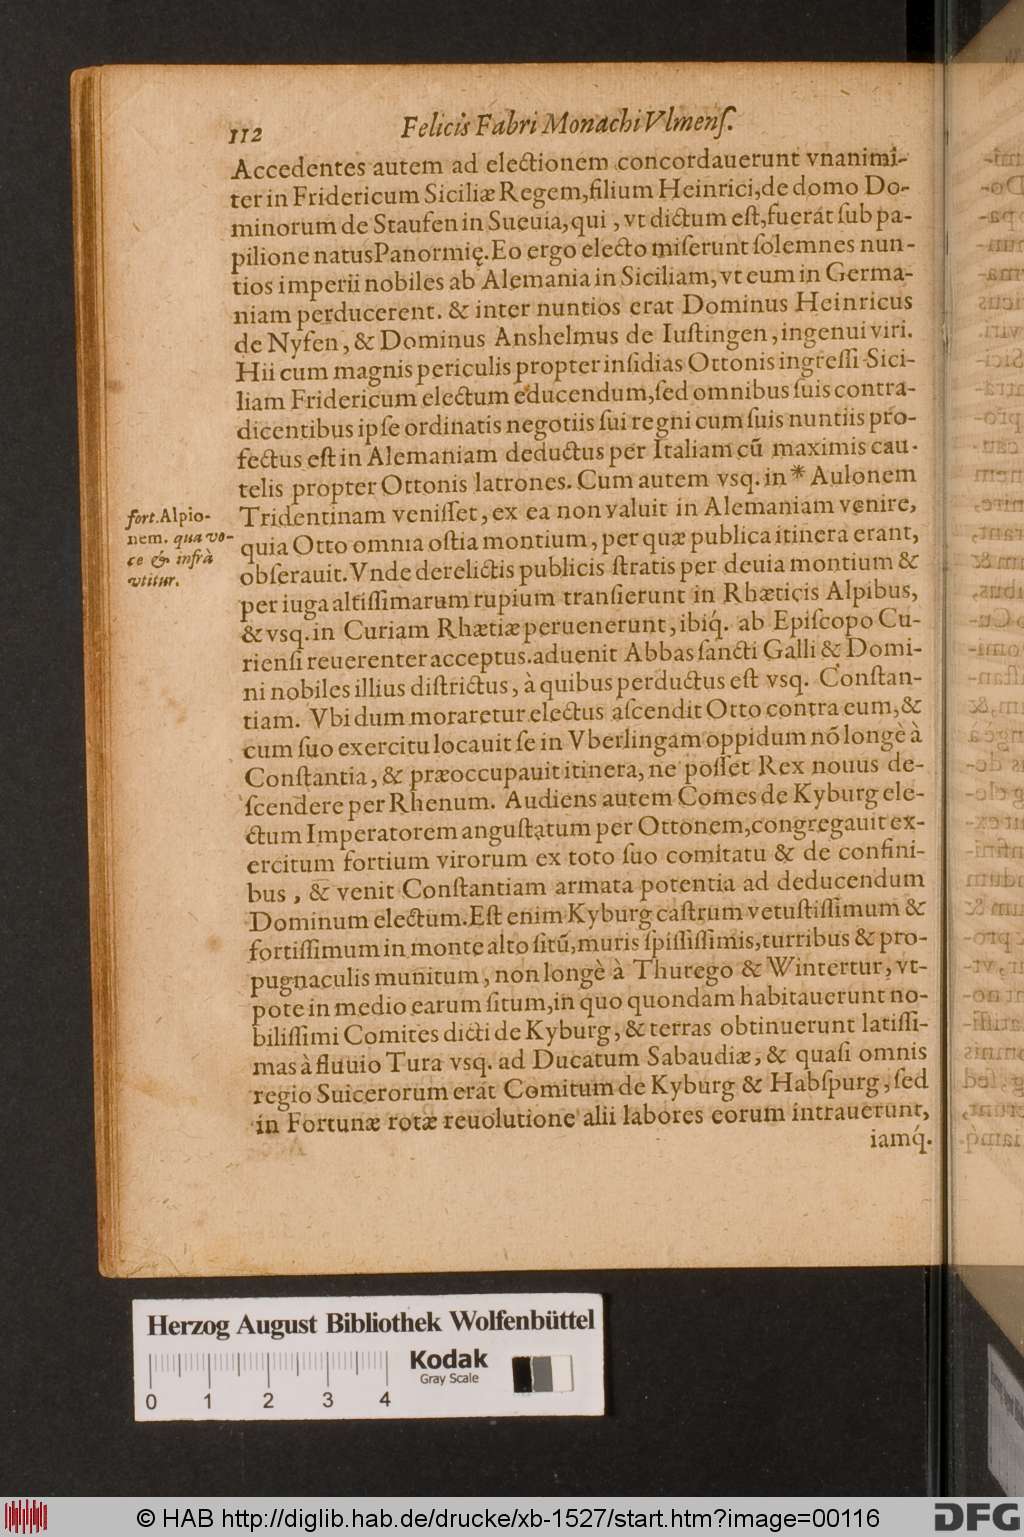 112 Felicis Fabri Monachi Vlmenſ.
Accedentes autem ad electionem concordauerunt vnanimi-
ter in Fridericum Siciliæ Regem, filium Heinrici, de domo Do-
minorum de Staufen in Sueuia, qui, vt dictum eſt, fuerat ſub pa-
pilione natus Panormię. Eo ergo electo miſerunt ſolemnes nun-
tios imperii nobiles ab Alemania in Siciliam, vt eum in Germa-
niam perducerent. & inter nuntios erat Dominus Heinricus
de Nyfen, & Dominus Anshelmus de Iuſtingen, ingenui viri.
Hii cum magnis periculis propter inſidias Ottonis ingreſſi Sici-
liam Fridericum electum educendum, ſed omnibus ſuis contra-
dicentibus ipſe ordinatis negotiis ſui regni cum ſuis nuntiis pro-
fectus eſt in Alemaniam deductus per Italiam cũ maximis cau-
telis propter Ottonis latrones. Cum autem vsq. in * Aulonem
Tridentinam veniſſet, ex ea non valuit in Alemaniam venire,
quia Otto omnia oſtia montium, per quæ publica itinera erant,
obſerauit. Vnde derelictis publicis ſtratis per deuia montium &
per iuga altiſſimarum rupium tranſierunt in Rhæticis Alpibus,
& vsq. in Curiam Rhætiæ peruenerunt, ibiq́. ab Epiſcopo Cu-
rienſi reuerenter acceptus. aduenit Abbas ſancti Galli & Domi-
ni nobiles illius diſtrictus, à quibus perductus eſt vsq. Conſtan-
tiam. Vbi dum moraretur electus aſcendit Otto contra eum, &
cum ſuo exercitu locauit ſe in Vberlingam oppidum nõ longè à
Conſtantia, & præoccupauit itinera, ne poſſet Rex nouus de-
ſcendere per Rhenum. Audiens autem Comes de Kyburg ele-
ctum Imperatorem anguſtatum per Ottonem, congregauit ex-
ercitum fortium virorum ex toto ſuo comitatu & de confini-
bus, & venit Conſtantiam armata potentia ad deducendum
Dominum electum. Eſt enim Kyburg caſtrum vetuſtiſſimum &
fortiſſimum in monte alto ſitũ, muris ſpiſſiſſimis, turribus & pro-
pugnaculis munitum, non longè à Thurego & Wintertur, vt-
pote in medio earum ſitum, in quo quondam habitauerunt no-
biliſſimi Comites dicti de Kyburg, & terras obtinuerunt latiſſi-
mas à fluuio Tura vsq. ad Ducatum Sabaudiæ, & quaſi omnis
regio Suicerorum erat Comitum de Kyburg & Habſpurg, ſed
in Fortunæ rotæ reuolutione alii labores eorum intrauerunt,
iamq́.
fort. Alpio-
nem. qua vo-
ce & infrà
vtitur.
Herzog August Bibliothek Wolfenbüttel
Kodak
Gray Scale
0 1 2 3 4
© HAB http://diglib.hab.de/drucke/xb-1527/start.htm?image=00116
DFG